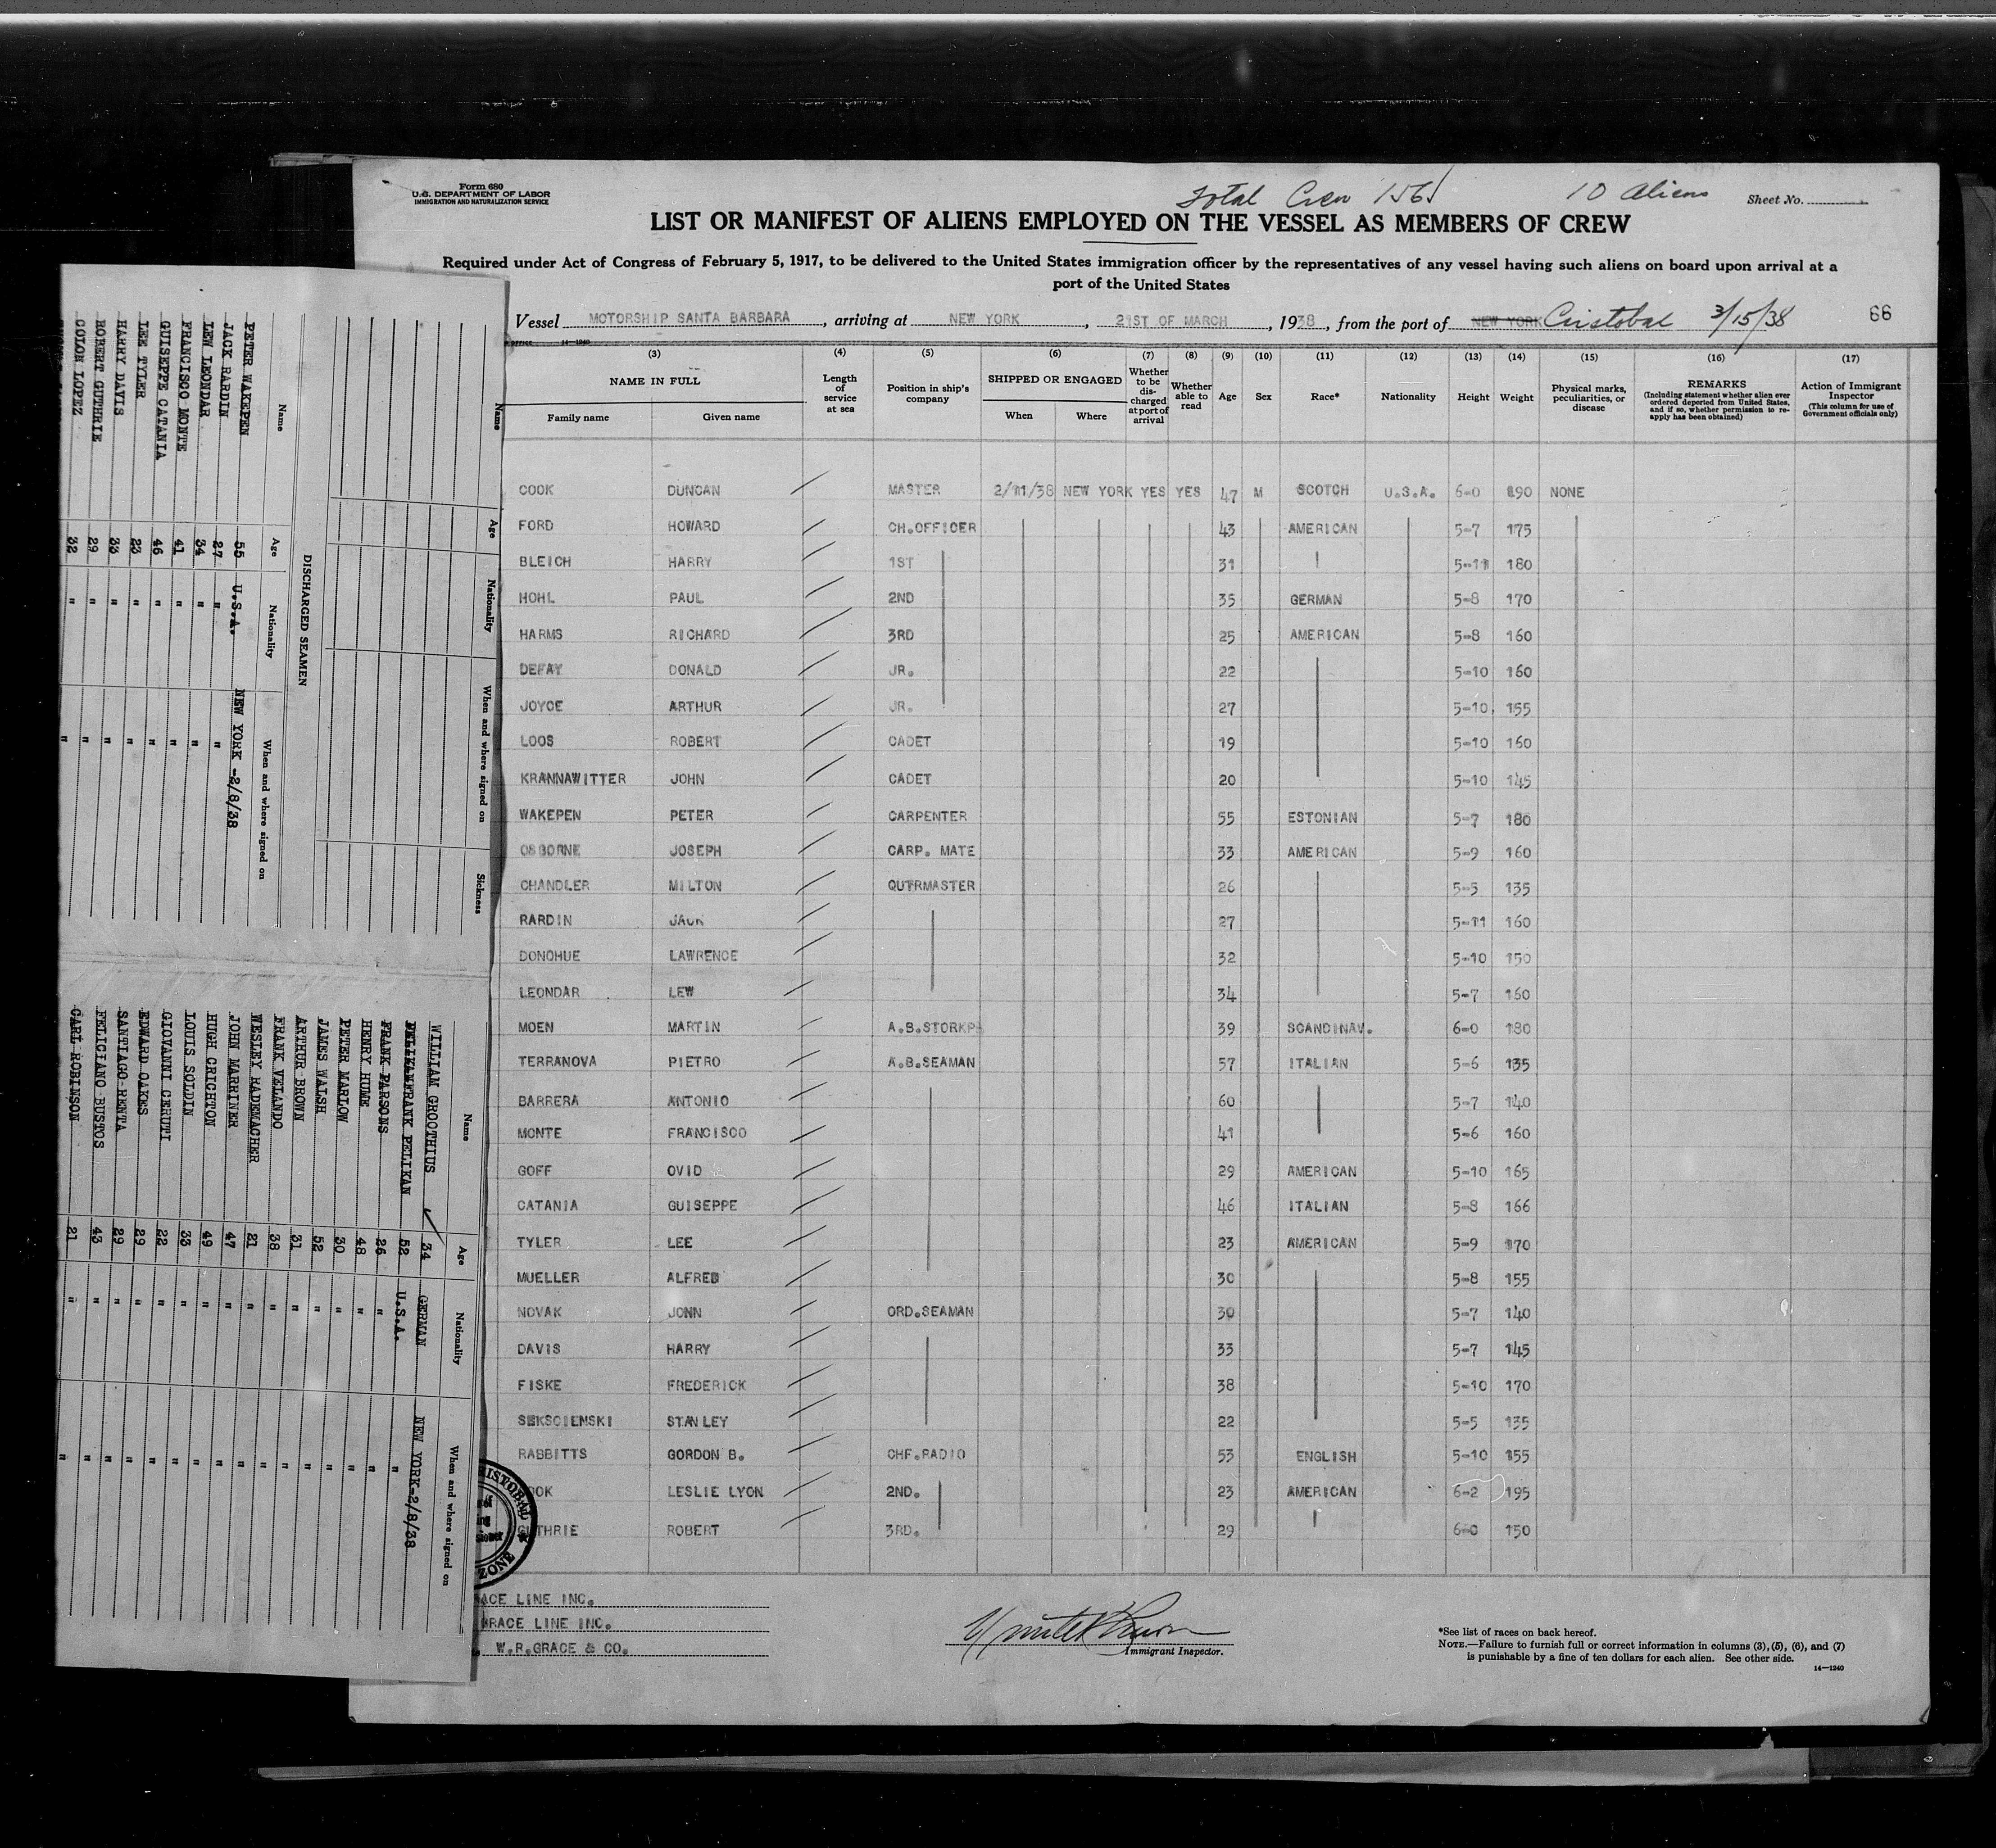 Form 680
U.S. DEPARTMENT OF LABOR
IMMIGRATION AND NATURALIZATION SERVICE
Total Crew 156
10 Aliens
Sheet No.
LIST OR MANIFEST OF ALIENS EMPLOYED ON THE VESSEL AS MEMBERS OF CREW
Required under Act of Congress of February 5, 1917, to be delivered to the United States immigration officer by the representatives of any vessel having such aliens on board upon arrival at a
port of the United States
Vessel MOTORSHIP SANTA BARBARA, arriving at NEW YORK, 21ST OF MARCH, 1938, from the port of NEW YORK Cristobal 3/15/38 66
14-1240
(3) (4) (5) (6) (7) (8) (9) (10) (11) (12) (13) (14) (15) (16) (17)
NAME IN FULL
Family name Given name
Length of service at sea
Position in ship's company
SHIPPED OR ENGAGED
When Where
Whether to be discharged at port of arrival
Whether able to read
Age
Sex
Race*
Nationality
Height
Weight
Physical marks, peculiarities, or disease
REMARKS
(Including statement whether alien ever ordered deported from United States, and if so, whether permission to reapply has been obtained)
Action of Immigrant Inspector
(This column for use of Government officials only)
COOK DUNCAN MASTER 2/11/38 NEW YORK YES YES 47 M SCOTCH U.S.A. 6-0 190 NONE
FORD HOWARD CH.OFFICER 43 AMERICAN 5-7 175
BLEICH HARRY 1ST 31 5-11 180
HOHL PAUL 2ND 35 GERMAN 5-8 170
HARMS RICHARD 3RD 25 AMERICAN 5-8 160
DEFAY DONALD JR. 22 5-10 160
JOYCE ARTHUR JR. 27 5-10 155
LOOS ROBERT CADET 19 5-10 160
KRANNAWITTER JOHN CADET 20 5-10 145
WAKEPEN PETER CARPENTER 55 ESTONIAN 5-7 180
OSBORNE JOSEPH CARP. MATE 33 AMERICAN 5-9 160
CHANDLER MILTON QUTRMASTER 26 5-5 135
RARDIN JACK 27 5-11 160
DONOHUE LAWRENCE 32 5-10 150
LEONDAR LEW 34 5-7 160
MOEN MARTIN A.B.STORKP 39 SCANDINAV. 6-0 180
TERRANOVA PIETRO A.B.SEAMAN 57 ITALIAN 5-6 135
BARRERA ANTONIO 60 5-7 140
MONTE FRANCISCO 41 5-6 160
GOFF OVID 29 AMERICAN 5-10 165
CATANIA GUISEPPE 46 ITALIAN 5-8 166
TYLER LEE 23 AMERICAN 5-9 170
MUELLER ALFRED 30 5-8 155
NOVAK JONN ORD.SEAMAN 30 5-7 140
DAVIS HARRY 33 5-7 145
FISKE FREDERICK 38 5-10 170
SEKSCIENSKI STANLEY 22 5-5 135
RABBITTS GORDON B. CHF.RADIO 53 ENGLISH 5-10 155
OOK LESLIE LYON 2ND. 23 AMERICAN 6-2 195
GUTHRIE ROBERT 3RD. 29 6-0 150
ACE LINE INC.
GRACE LINE INC.
W.R.GRACE & CO.
Immigrant Inspector.
*See list of races on back hereof.
NOTE.—Failure to furnish full or correct information in columns (3), (5), (6), and (7)
is punishable by a fine of ten dollars for each alien. See other side.
14-1240
ZONE
Name Age Nationality When and where signed on Sickness
DISCHARGED SEAMEN
Name Age Nationality When and where signed on
PETER WAKEPEN 55 U.S.A. NEW YORK -2/8/38
JACK RARDIN 27 " "
LEW LEONDAR 34 " "
FRANCISCO MONTE 41 " "
GUISEPPE CATANIA 46 " "
LEE TYLER 23 " "
HARRY DAVIS 33 " "
ROBERT GUTHRIE 29 " "
COLON LOPEZ 32 " "
Name Age Nationality When and where signed on
WILLIAM GROOTHIUS 34 GERMAN NEW YORK-2/8/38
FRANK PELIKAN 52 U.S.A. "
FRANK PARSONS 26 " "
HENRY HUME 48 " "
PETER MARLOW 30 " "
JAMES WALSH 52 " "
ARTHUR BROWN 31 " "
FRANK VELANDO 38 " "
WESLEY RADEMACHER 21 " "
JOHN MARRINER 47 " "
HUGH CRICHTON 49 " "
LOUIS SOLDIN 33 " "
GIOVANNI CERUTI 22 " "
EDWARD OAKES 29 " "
SANTIAGO RENTA 29 " "
FELICIANO BUSTOS 43 " "
CARL ROBINSON 21 " "